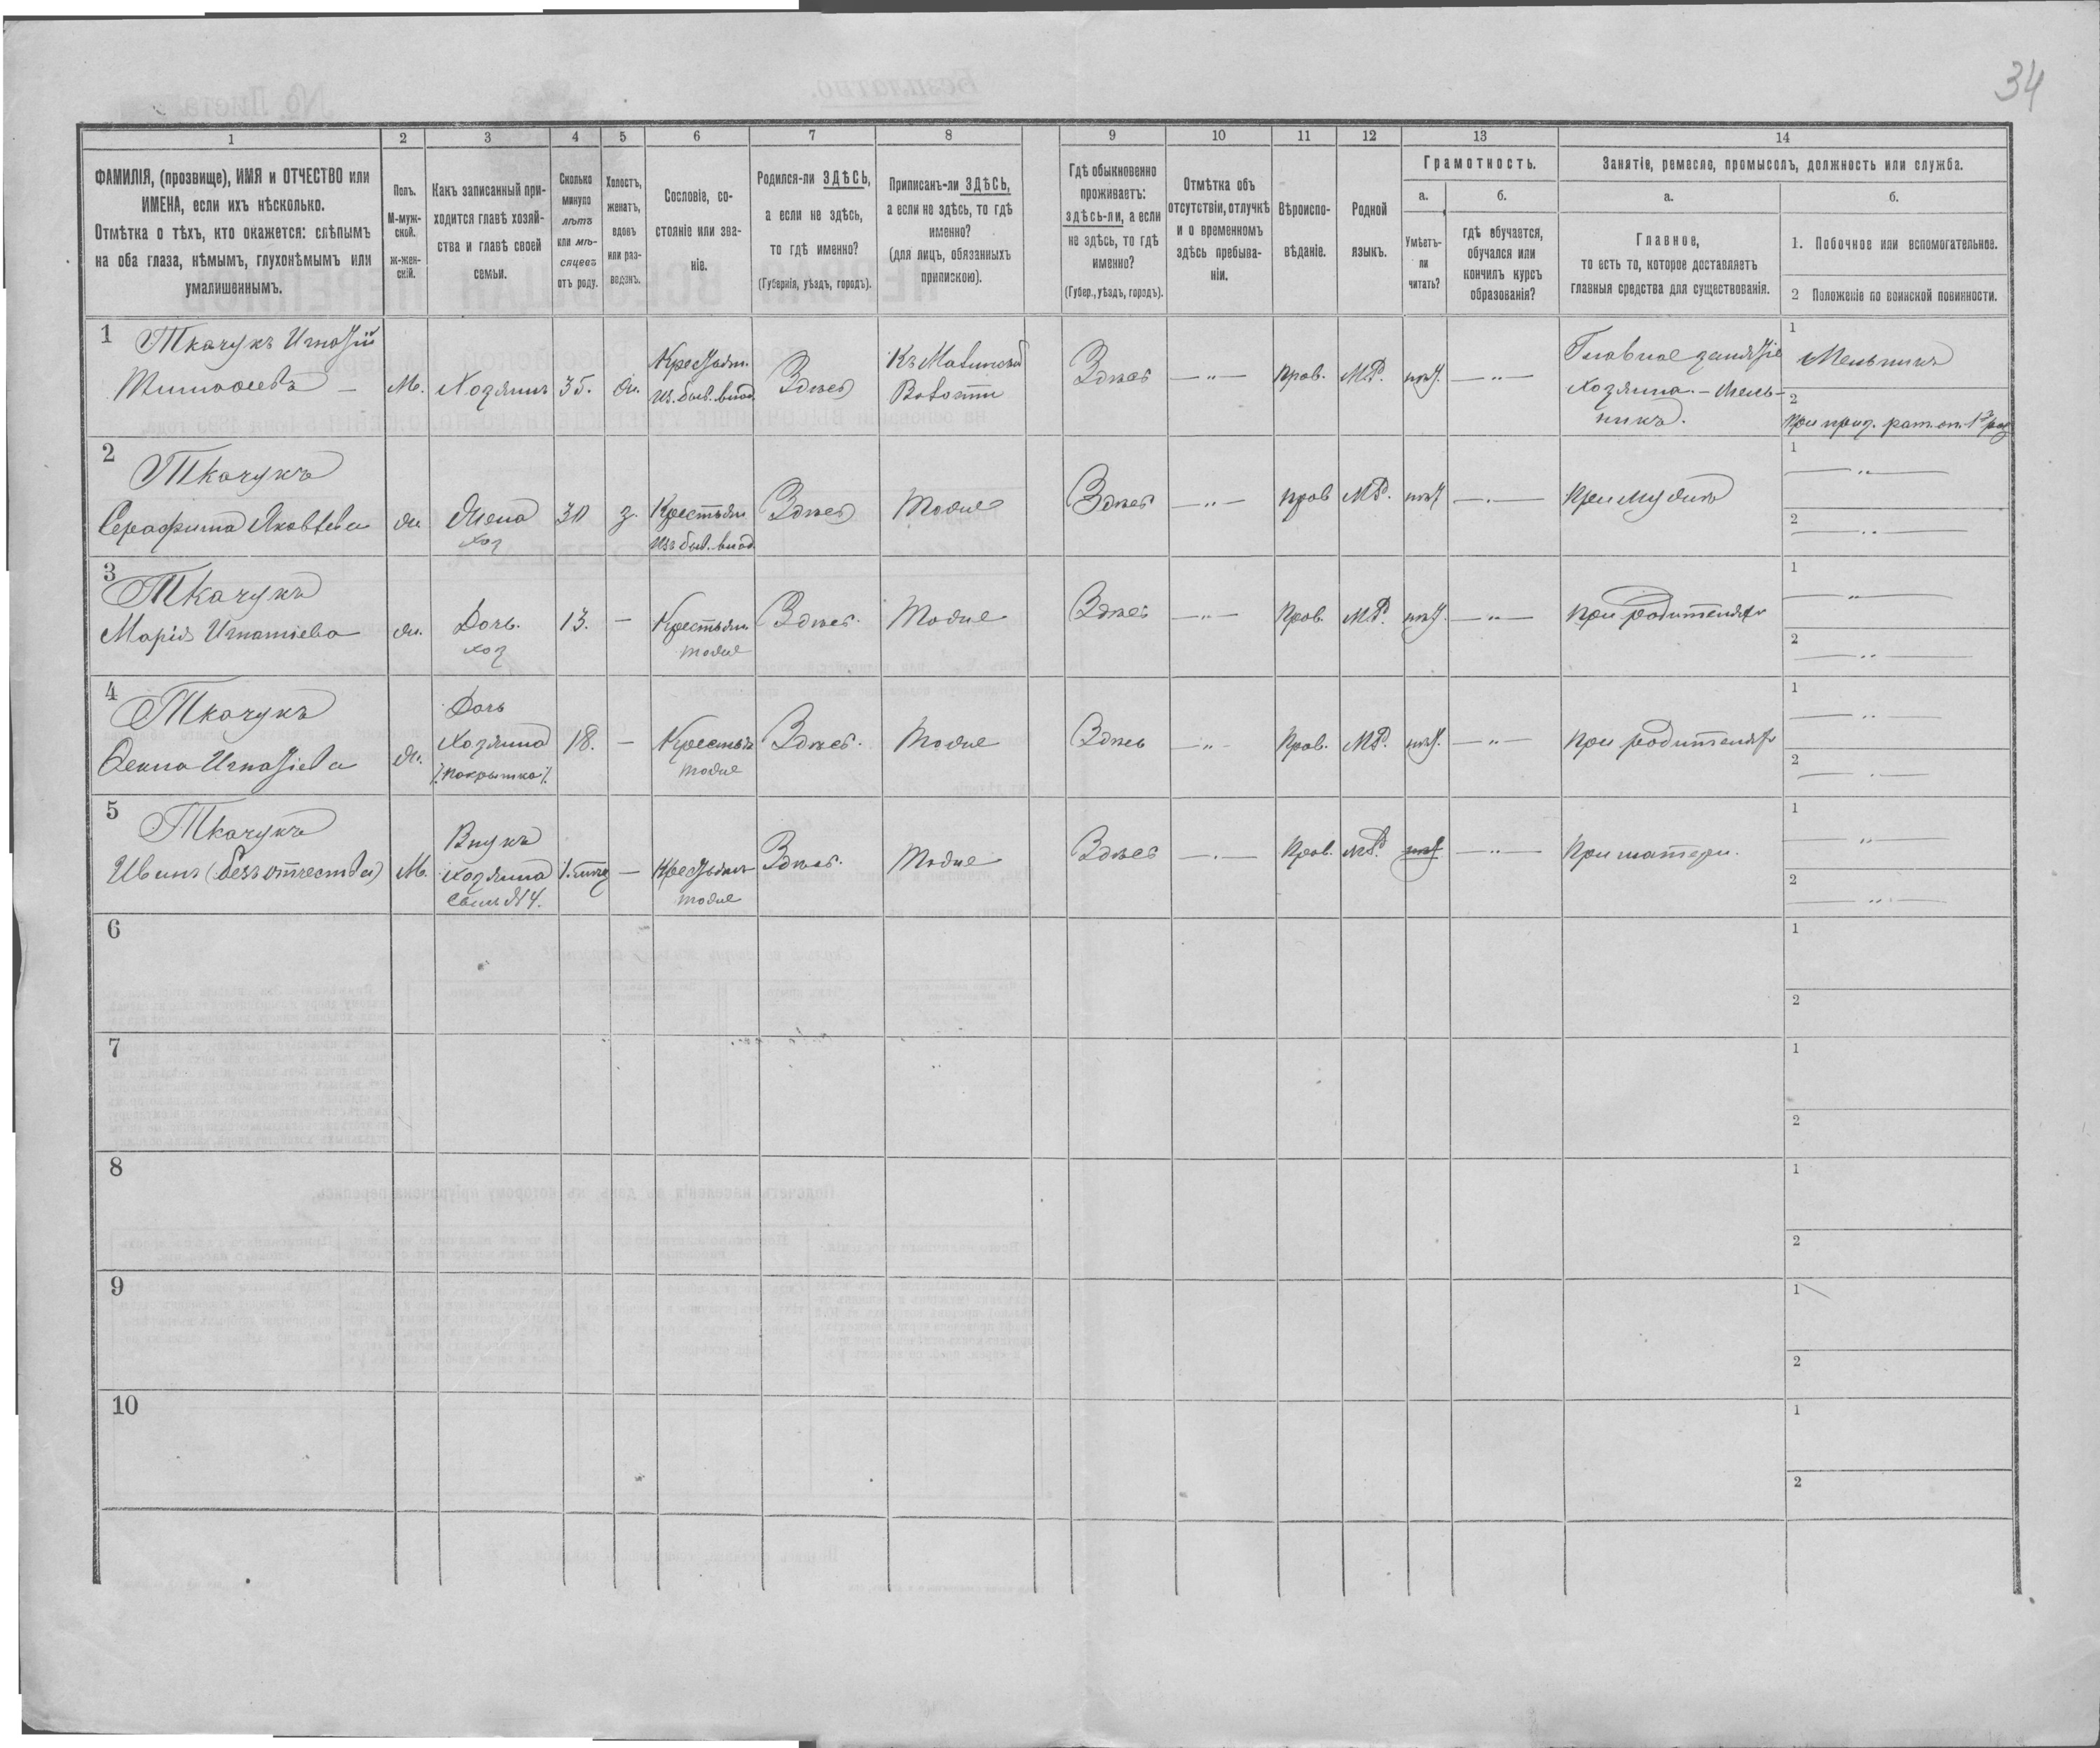 34
1 2 3 4 5 6 7 8 9 10 11 12 13 14
ФАМИЛІЯ, (прозвище), ИМЯ и ОТЧЕСТВО или
ИМЕНА, если ихъ нѣсколько.
Отмѣтка о тѣхъ, кто окажется: слѣпымъ
на оба глаза, нѣмымъ, глухонѣмымъ или
умалишеннымъ.
Полъ.
М-муж-
ской.
ж-жен-
скій.
Какъ записанный при-
ходится главѣ хозяй-
ства и главѣ своей
семьи.
Сколько
минуло
лѣтъ
или мѣ-
сяцевъ
отъ роду.
Холостъ,
женатъ,
вдовъ
или раз-
веденъ.
Сословіе, со-
стояніе или зва-
ніе.
Родился-ли ЗДѢСЬ,
а если не здѣсь,
то гдѣ именно?
(Губернія, уѣздъ, городъ).
Приписанъ-ли ЗДѢСЬ,
а если не здѣсь, то гдѣ
именно?
(для лицъ, обязанныхъ
припискою).
Гдѣ обыкновенно
проживаетъ:
здѣсь-ли, а если
не здѣсь, то гдѣ
именно?
(Губер., уѣздъ, городъ).
Отмѣтка объ
отсутствіи, отлучкѣ
и о временномъ
здѣсь пребыва-
ніи.
Вѣроиспо-
вѣданіе.
Родной
языкъ.
Грамотность.
а.
Умѣетъ-
ли
читать?
б.
гдѣ обучается,
обучался или
кончилъ курсъ
образованія?
Занятіе, ремесло, промыселъ, должность или служба.
а.
Главное,
то есть то, которое доставляетъ
главныя средства для существованія.
б.
1. Побочное или вспомогательное.
2 Положеніе по воинской повинности.
1
Ткачукъ Игнатій
М.
Хозяинъ
35.
ж.
Крестьян.
Из. быв. влад.
Здѣсь
Волости
Здѣсь
— " —
Прав.
МР.
нѣт.
— " —
Главное занятіе
Хозяина. – Мель-
никъ.
1
Мельникъ
2
2
Ткачукъ
Серафима Яковлева
ж
Жена
хоз
30
з.
Крестьян
Изъ быв. влад.
Здѣсь
Тоже
Здѣсь
— " —
прав
МР.
нѣт
— . —
При мужѣ
1
— " —
2
— " —
3
Ткачукъ
Марія Игнатіева
ж.
Дочь.
хоз
13.
—
Крестьян.
тоже
Здѣсь.
Тоже
Здѣсь
— " —
Прав.
МР.
нѣт.
— " —
При родителях
1
— " —
2
— " —
4
Ткачукъ
Игнатіева
ж.
Дочь
Хозяина
/. покрытка /.
18.
—
Крестьян
тоже
Здѣсь.
Тоже
Здѣсь
— " —
Прав.
МР.
нѣт.
— " —
При родителях
1
— " —
2
— . —
5
Ткачукъ
Иванъ (безъ отчества)
М.
Внукъ
Хозяина
Сынъ №4.
—
Крестьян
тоже
Здѣсь.
Тоже
Здѣсь
— . —
Прав.
МР.
нѣт
— " —
При матери.
1
"
2
— " —
6
1
2
7
1
2
8
1
2
9
1
2
10
1
2